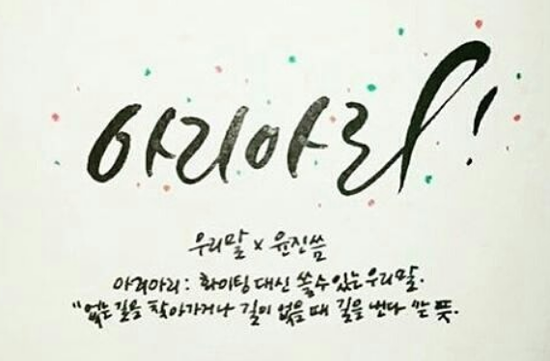 아리아리!
우리말 x 윤진씀
아리아리 : 화이팅 대신 쓸 수 있는 우리말.
"없는 길을 찾아가거나 길이 없을 때 길을 낸다 는 뜻.